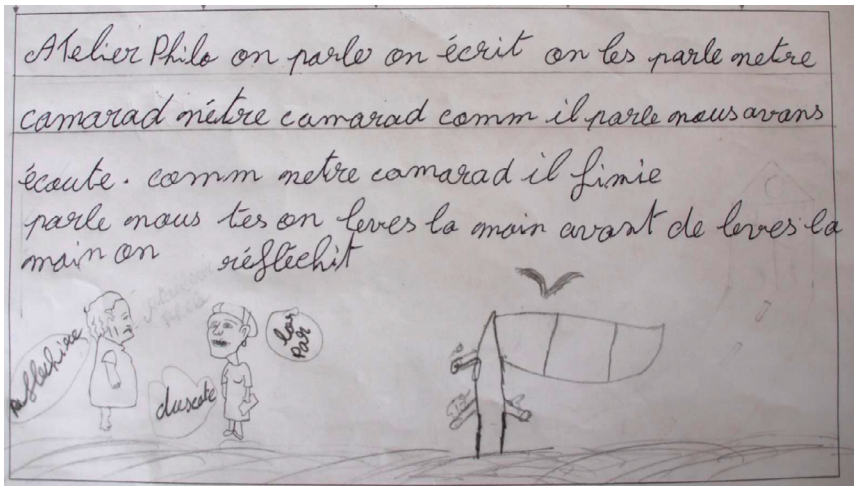 Atelier Philo on parle on écrit on les parle metre
camarad métre camarad comm il parle nous avans
écoute. comm metre camarad il fimie
parle nous tes on leves la main avant de leves la
main on réfléchit
Reflechire
duscote
lor
par